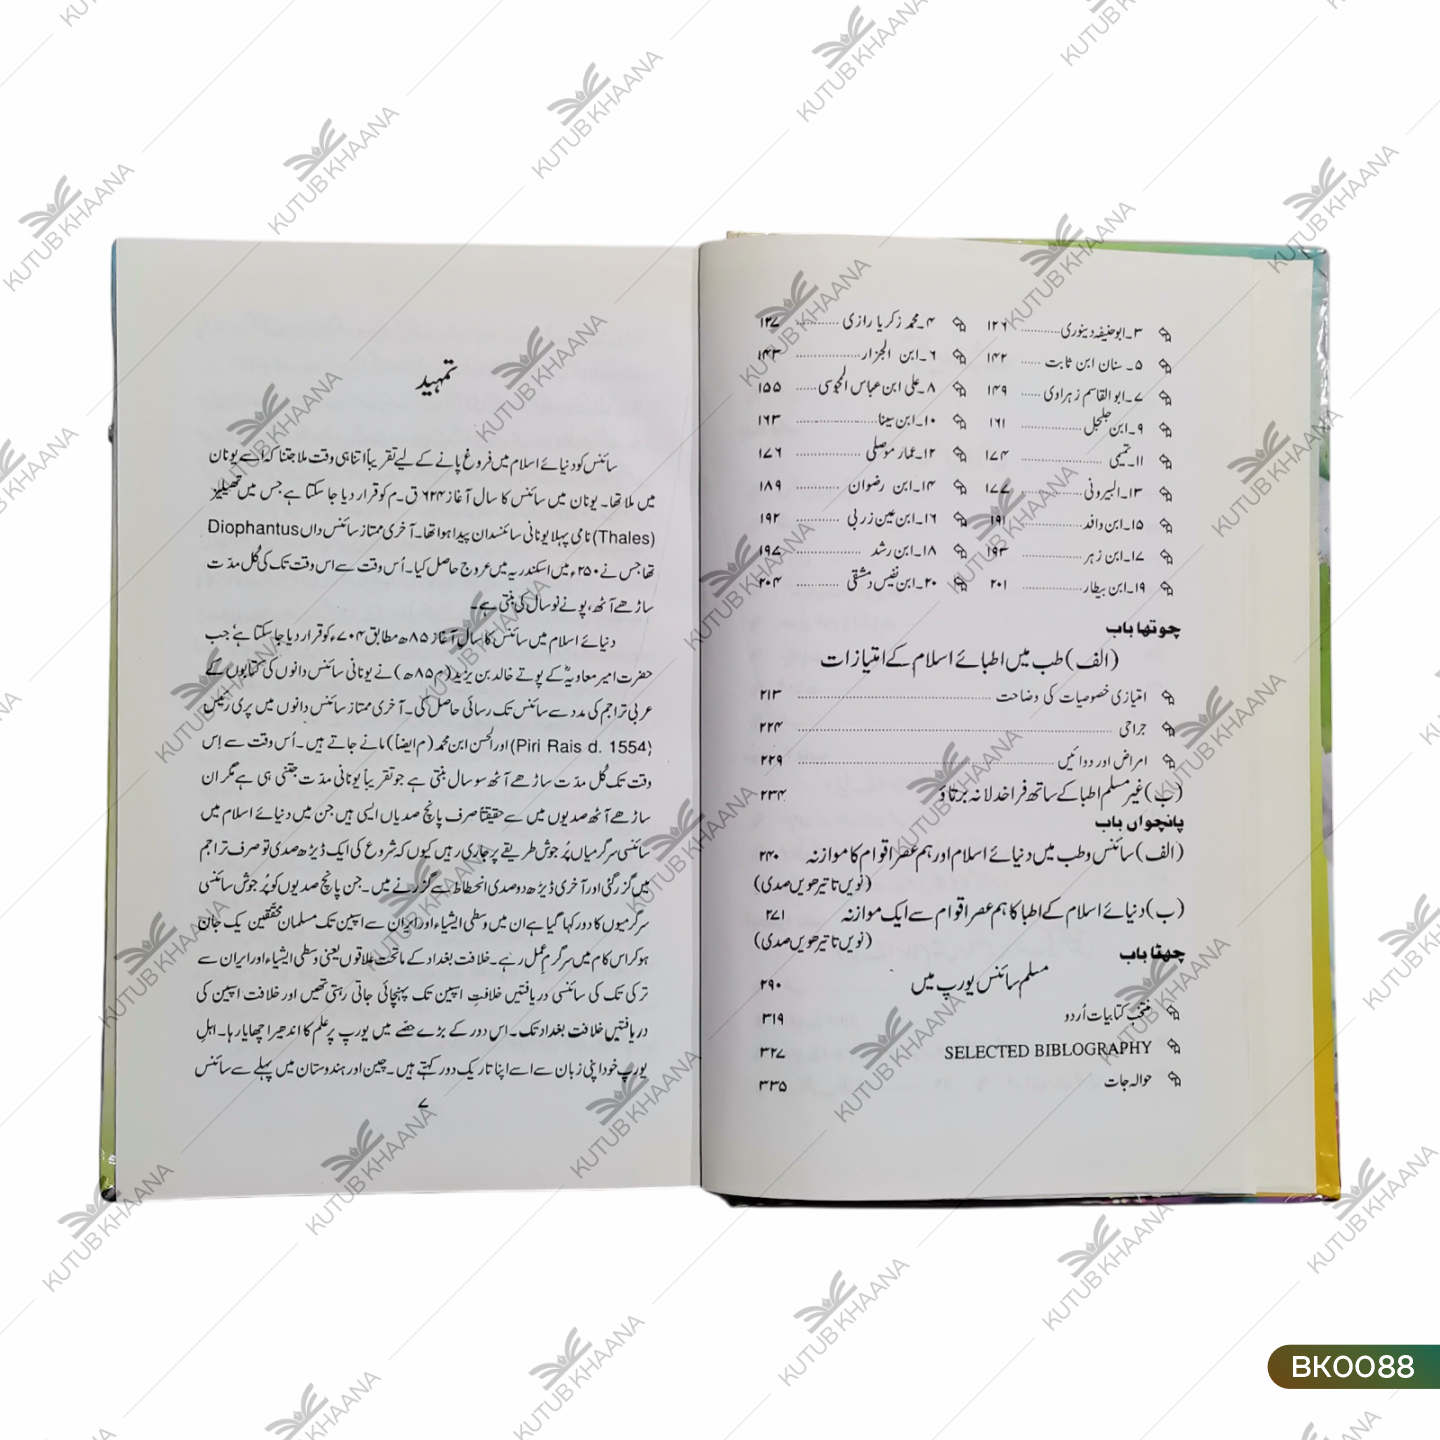 ۳۔ابوحنیفہ دینوری ............ ۱۲۶
۴۔محمد زکریا رازی ............ ۱۲۷
۵۔ سنان ابن ثابت ............ ۱۴۲
۶۔ابن الجزار ............ ۱۴۳
۷۔ابوالقاسم زہراوی ...... ۱۴۹
۸۔علی ابن عباس المجوسی ...... ۱۵۵
۹۔ابن جلجل ............ ۱۶۱
۱۰۔ابن سینا ............ ۱۶۳
۱۱۔تمیمی ............ ۱۷۴
۱۲۔عمار موصلی ............ ۱۷۶
۱۳۔البیرونی ............ ۱۷۷
۱۴۔ابن رضوان ............ ۱۸۹
۱۵۔ابن وافد ............ ۱۹۱
۱۶۔ابن عین زربی ............ ۱۹۲
۱۷۔ابن زہر ............ ۱۹۳
۱۸۔ابن رشد ............ ۱۹۷
۱۹۔ابن بیطار ............ ۲۰۱
۲۰۔ابن نفیس دمشقی ............ ۲۰۴
چوتھا باب
(الف) طب میں اطبائے اسلام کے امتیازات
امتیازی خصوصیات کی وضاحت ............ ۲۱۳
جراحی ............ ۲۲۴
امراض اور دوائیں ............ ۲۲۹
(ب) غیر مسلم اطبا کے ساتھ فراخدلانہ برتاؤ ۲۳۴
پانچواں باب
(الف) سائنس و طب میں دنیائے اسلام اور ہم عصر اقوام کا موازنہ ۲۴۰
(نویں تا تیرھویں صدی)
(ب) دنیائے اسلام کے اطبا کا ہم عصر اقوام سے ایک موازنہ ۲۷۱
(نویں تا تیرھویں صدی)
چھٹا باب
مسلم سائنس یورپ میں ۲۹۰
منتخب کتابیات اُردو ۳۱۹
SELECTED BIBLOGRAPHY ۳۲۷
حوالہ جات ۳۳۵
تمہید
سائنس کو دنیائے اسلام میں فروغ پانے کے لیے تقریباً اتنا ہی وقت ملا جتنا کہ اسے یونان
میں ملا تھا۔ یونان میں سائنس کا سال آغاز ۶۲۴ ق۔م کو قرار دیا جا سکتا ہے جس میں تھیلیز
(Thales) نامی پہلا یونانی سائنسدان پیدا ہوا تھا۔ آخری ممتاز سائنس داں Diophantus
تھا جس نے ۲۵۰ء میں اسکندریہ میں عروج حاصل کیا۔ اُس وقت سے اس وقت تک کی کُل مدّت
ساڑھے آٹھ، پونے نو سال کی بنتی ہے۔
دنیائے اسلام میں سائنس کا سال آغاز ۸۵ھ مطابق ۷۰۴ء کو قرار دیا جا سکتا ہے جب
حضرت امیر معاویہؓ کے پوتے خالد بن یزید (م ۸۵ھ) نے یونانی سائنس دانوں کی کتابوں کے
عربی تراجم کی مدد سے سائنس تک رسائی حاصل کی۔ آخری ممتاز سائنس دانوں میں پری رئیس
(Piri Rais d. 1554) اور الحسن ابن محمد (م ایضاً) مانے جاتے ہیں۔ اُس وقت سے اِس
وقت تک کُل مدّت ساڑھے آٹھ سو سال بنتی ہے جو تقریباً یونانی مدّت جتنی ہی ہے مگر ان
ساڑھے آٹھ صدیوں میں سے حقیقتاً صرف پانچ صدیاں ایسی ہیں جن میں دنیائے اسلام میں
سائنسی سرگرمیاں پُر جوش طریقے پر جاری رہیں کیوں کہ شروع کی ایک ڈیڑھ صدی تو صرف تراجم
میں گزر گئی اور آخری ڈیڑھ دو صدی انحطاط سے گزرنے میں۔ جن پانچ صدیوں کو پُر جوش سائنسی
سرگرمیوں کا دور کہا گیا ہے ان میں وسطی ایشیاء اور ایران سے اسپین تک مسلمان محقّقین یک جان
ہو کر اس کام میں سرگرمِ عمل رہے۔ خلافت بغداد کے ماتحت علاقوں یعنی وسطی ایشیاء اور ایران سے
ترکی تک کی سائنسی دریافتیں خلافتِ اسپین تک پہنچائی جاتی رہتی تھیں اور خلافت اسپین کی
دریافتیں خلافت بغداد تک۔ اس دور کے بڑے حصّے میں یورپ پر علم کا اندھیرا چھایا رہا۔ اہلِ
یورپ خود اپنی زبان سے اسے اپنا تاریک دور کہتے ہیں۔ چین اور ہندوستان میں پہلے سے سائنس
۷
KUTUB KHAANA
BK0088